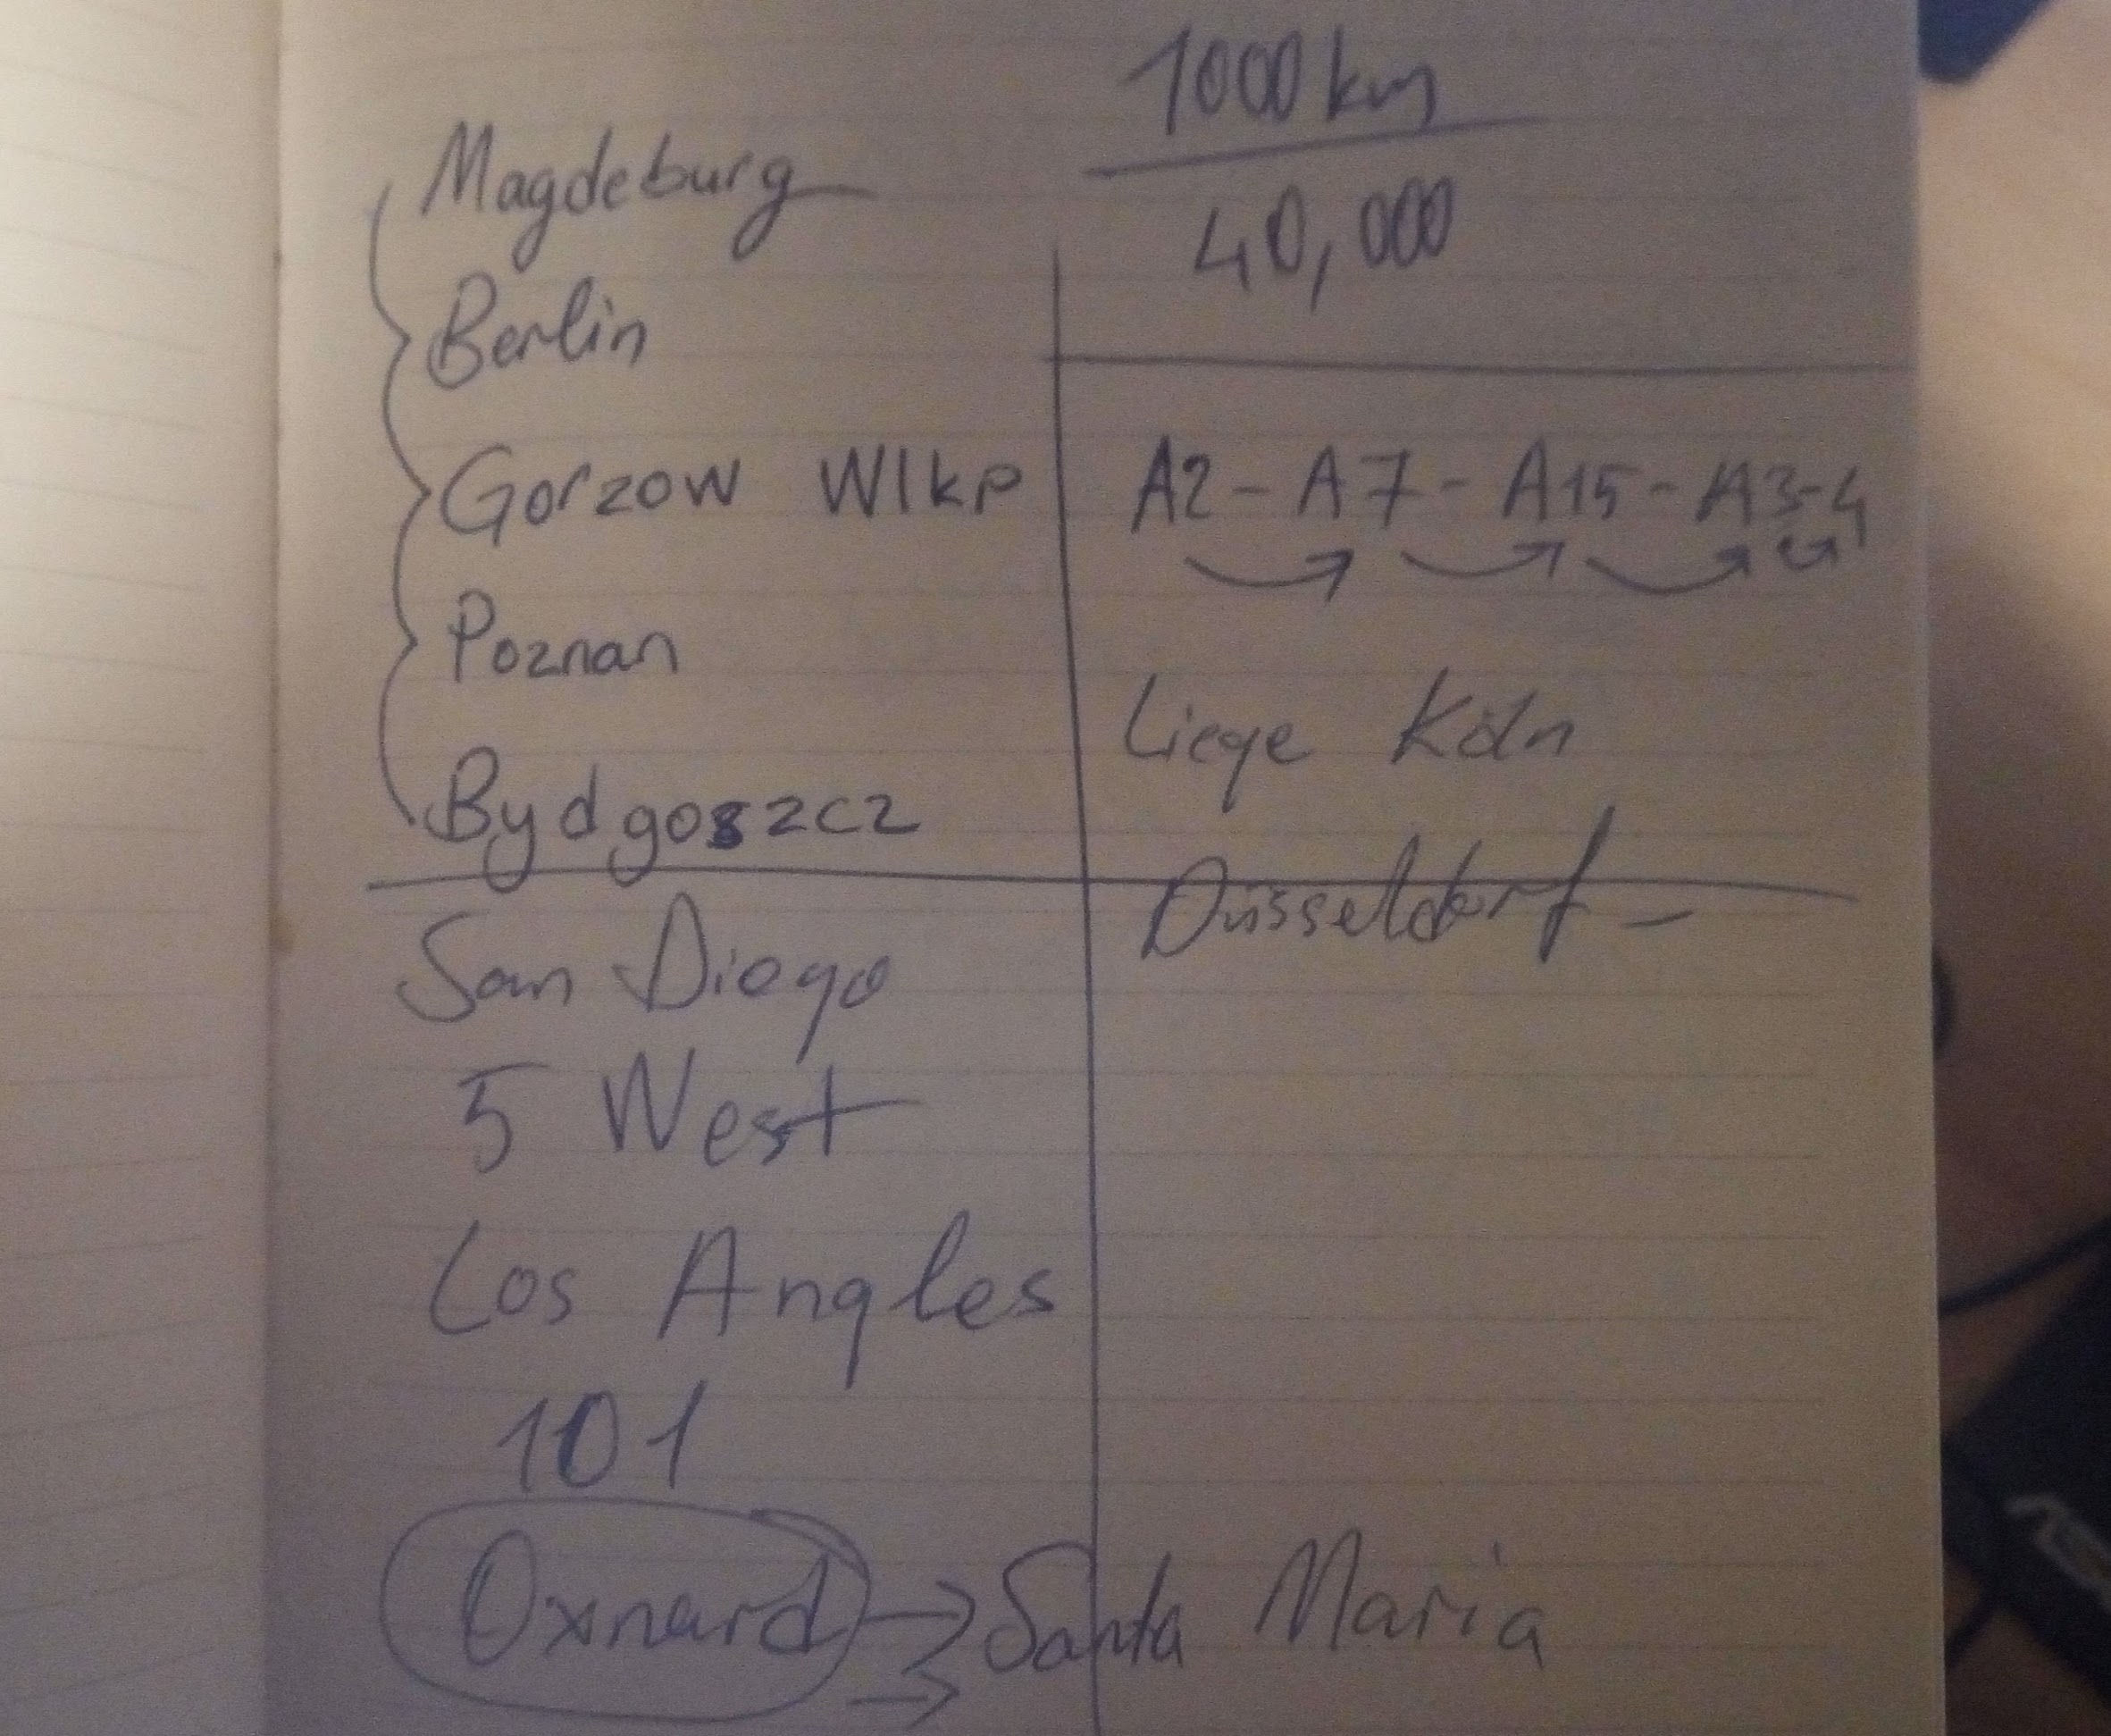 Magdeburg
Berlin
Gorzow Wlkp
Poznan
Bydgoszcz
1000 km
40,000
A2 - A7 - A15 - A3-4
Liege Köln
Düsseldorf -
San Diego
5 West
Los Angles
101
Oxnard → Santa Maria
→